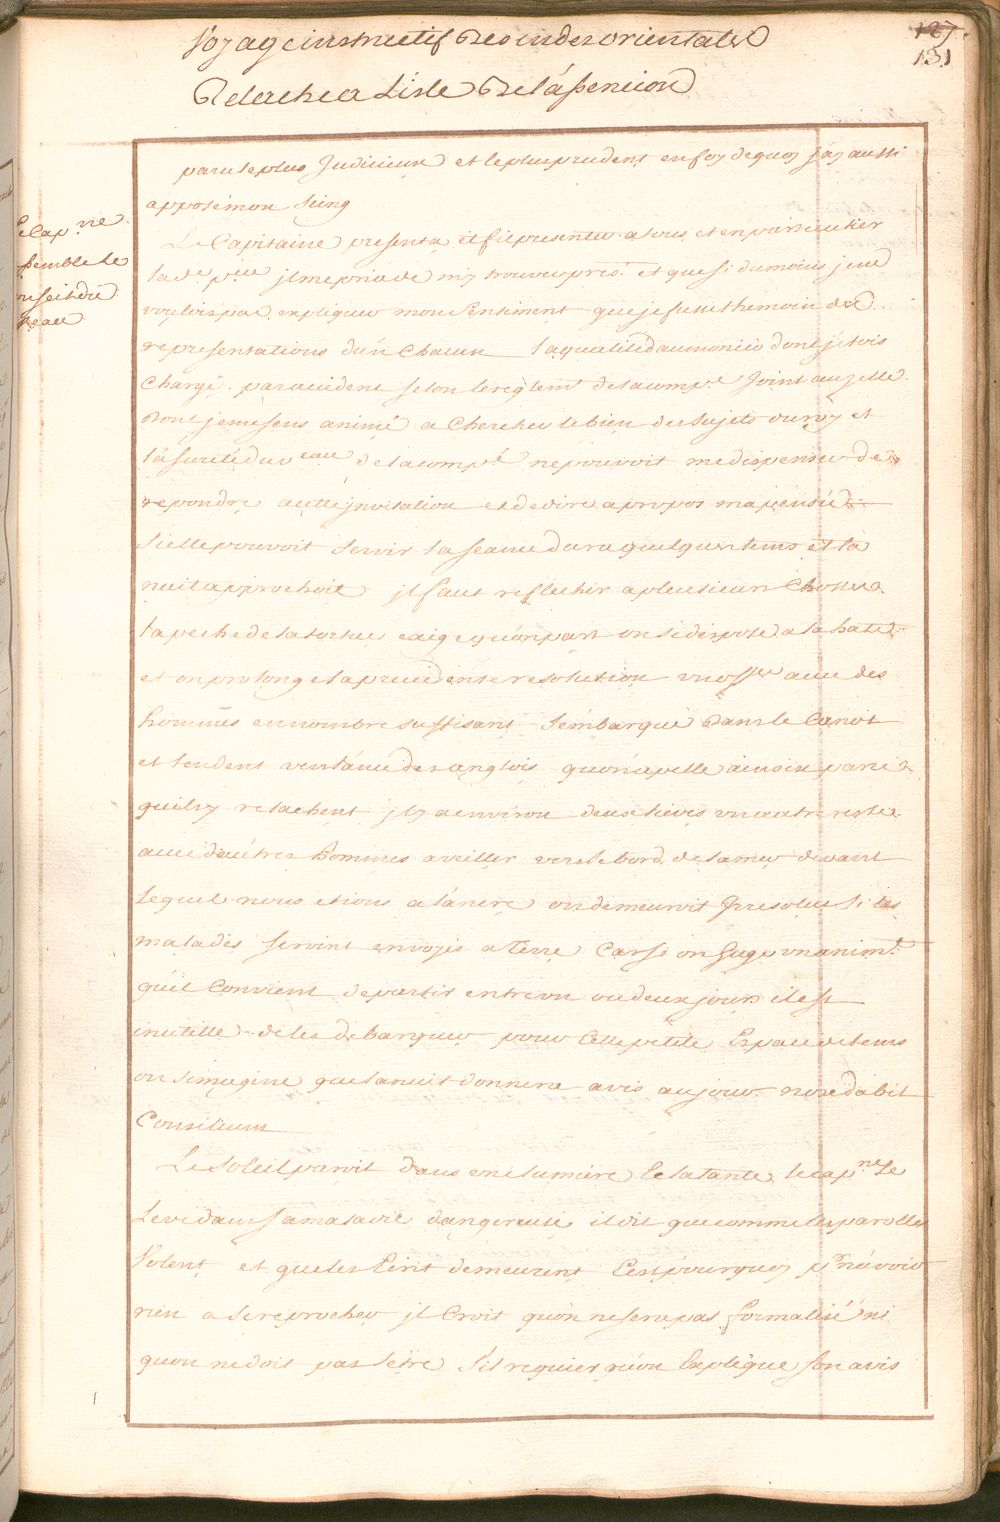 127.
131
Voyage instructif Des indes orientales
Relache a Lisle De l'ássencion
paru le plus Judicieux et le plus prudent en foy de quoy J'ay aussi
apposé mon Seing
Le Cap.ne
assemble le
conseil du
v.eau
Le Capitaine presenta et fit presenter a tous et en particulier
la de. p.ce il me pria de m'y trouver pres.t et que si du moins je ne
voulois pas expliquer mon Sentiment que je fusse themoin des
representations d'un Chacun la qualité d'aumonier dont j'étois
Chargé par accident selon le reglem.t de la comp.e Joint au zelle
Dont je me sens animé a Chercher le bien des Sujets du roy et
la sureté du v.eau de la comp.e ne pouvoit me dispenser de
repondre a cette jnvitation et de dire a propos ma pensée
Si elle pouvoit servir la seance dura quelques tems et la
nuit approchoit il faut reflechir a plusieurs Choses
la peche de la tortue exige qu'on part on si dispose a la hate
et on prolonge la precedente resolution un off.er avec des
hommes en nombre suffisant s'embarque Dans le Canot
et tendent vers l'ance des anglois qu'on apelle ainsi parce
qu'ils y relachent il y a environ deux lieues un autre reste
avec d'autres hommes a veiller vers le bord de la mer devant
lequel nous etions a l'ancre on demeuroit Jrresolu si les
malades seront envoyés a Terre Car si on Juge unanim.t
qu'il Convient de partir entre un ou deux jours il est
inutille de les debarquer pour Cette petite Espace de tems
on s'imagine que la nuit donnera avis au jour nox dabit
Consilium
Le Soleil paroit dans une lumiere Eclatante, le cap.ne Se
Leve dans sa maladie dangereuse il dit que comme les parolles
Volent et que les Ecrit demeurent C'est pourquoy p.r n'avoir
rien a se reprocher il Croit qu'on ne sera pas formalisé ni
qu'on ne doit pas l'etre S'il requier qu'on Explique son avis